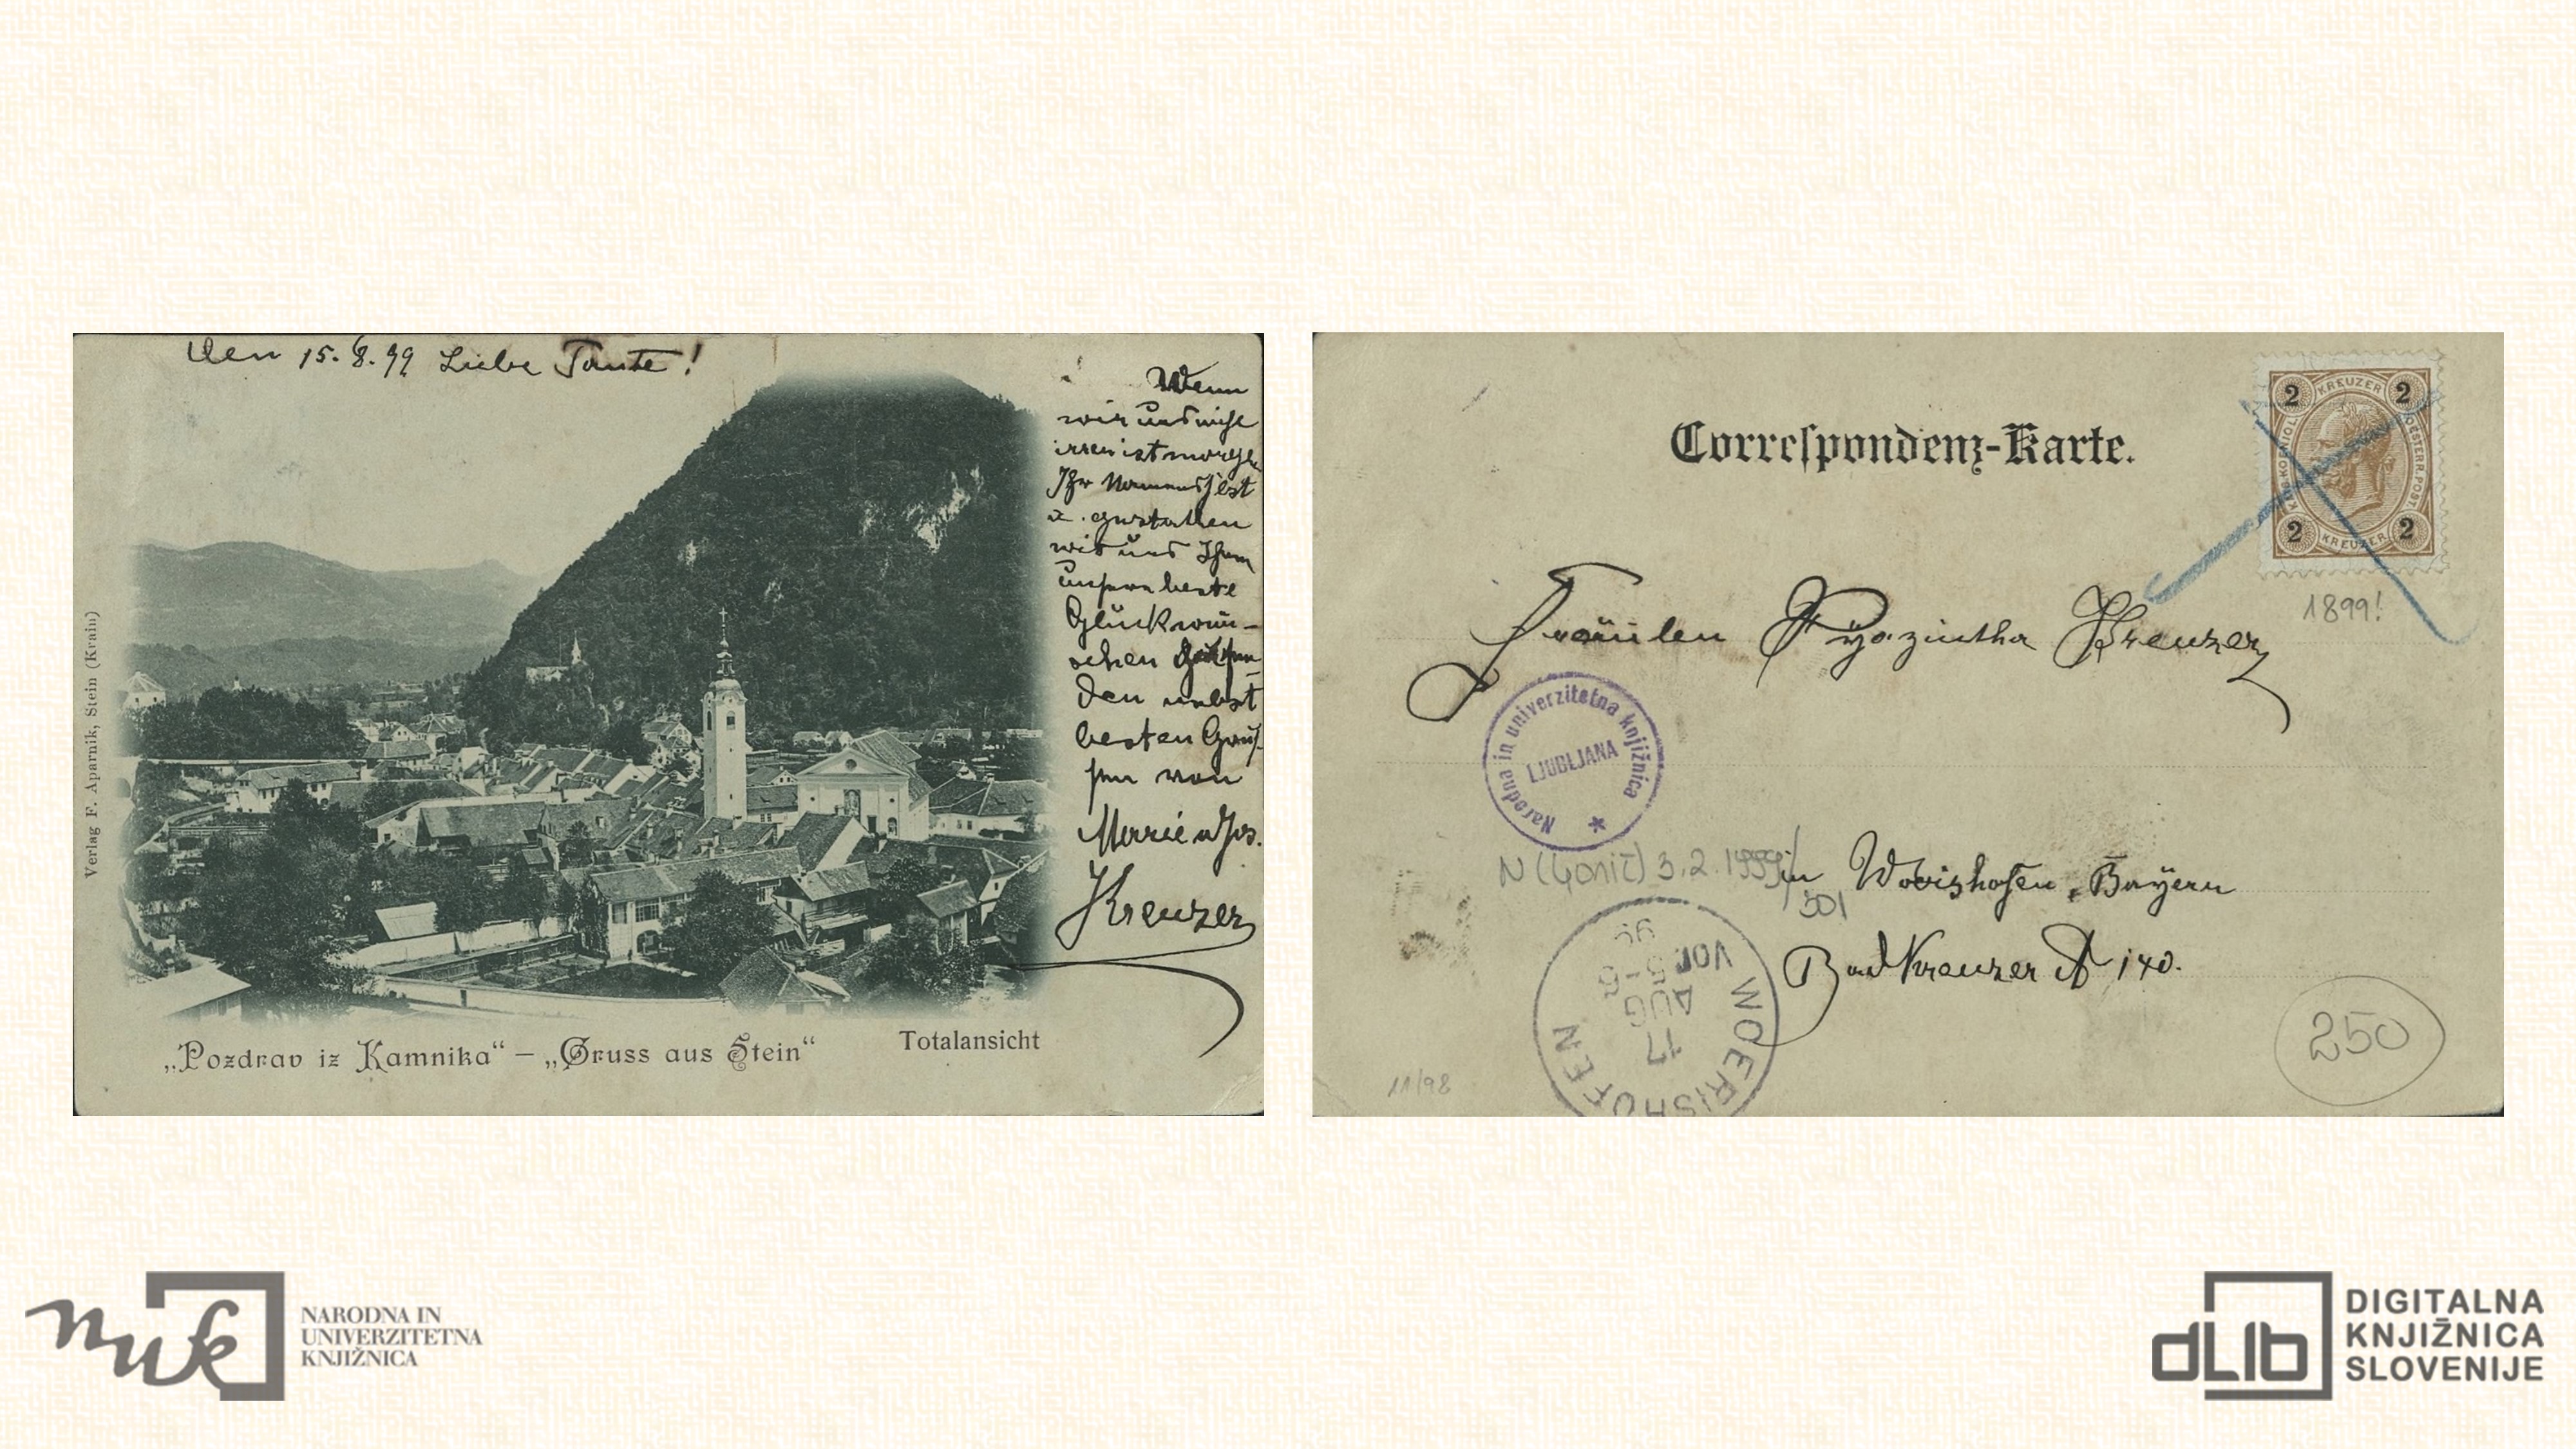 Den 15. 8. 99 Liebe Tante!
Wenn
wir uns nicht
irren ist morgen
Ihr Namensfest
u. gestatten
wir uns Ihnen
unsere beste
Glückwün-
schen
den nebst
besten Grüs-
sen von
Marie u Jos.
Kreuzer
Verlag F. Aparnik, Stein (Krain)
„Pozdrav iz Kamnika“ – „Gruss aus Stein“
Totalansicht
Correspondenz-Karte.
2 KREUZER 2
2 KREUZER 2
1899!
Fräulen Hyazintha Kreuzer
Narodna in univerzitetna knjižnica
LJUBLJANA
N (Gonič) 3.2.1999/
301
in Wörishofen, Bayern
Bad Kreuzer № 140.
WOERISHOFEN
17
AUG
5-6
VOR.
99
11/98
250
nuk
NARODNA IN
UNIVERZITETNA
KNJIŽNICA
dLib
DIGITALNA
KNJIŽNICA
SLOVENIJE